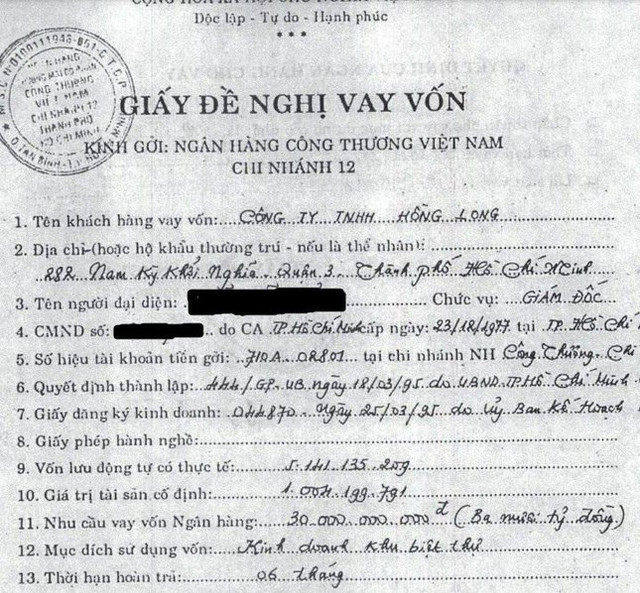 Độc lập - Tự do - Hạnh phúc
GIẤY ĐỀ NGHỊ VAY VỐN
KÍNH GỞI: NGÂN HÀNG CÔNG THƯƠNG VIỆT NAM
CHI NHÁNH 12
1. Tên khách hàng vay vốn: CÔNG TY TNHH HỒNG LONG
2. Địa chỉ (hoặc hộ khẩu thường trú - nếu là thể nhân):
282 Nam Kỳ Khởi Nghĩa Quận 3 Thành phố Hồ Chí Minh
3. Tên người đại diện: Chức vụ: GIÁM ĐỐC
4. CMND số: do CA TP.Hồ Chí Minh cấp ngày: 23/12/1977 tại TP. Hồ Chí
5. Số hiệu tài khoản tiền gởi: tại chi nhánh NH Công Thương. Chi
6. Quyết định thành lập: 444/GP.UB ngày 18/03/95 do UBND TP.Hồ Chí Minh
7. Giấy đăng ký kinh doanh: 044870 Ngày 25/03/95 do Ủy Ban Kế Hoạch
8. Giấy phép hành nghề:
9. Vốn lưu động tự có thực tế: 5.141.135.209
10. Giá trị tài sản cố định: 1.004.199.791
11. Nhu cầu vay vốn Ngân hàng: 30.000.000.000đ (Ba mươi tỷ đồng)
12. Mục đích sử dụng vốn: Kinh doanh khu biệt thự
13. Thời hạn hoàn trả: 06 tháng